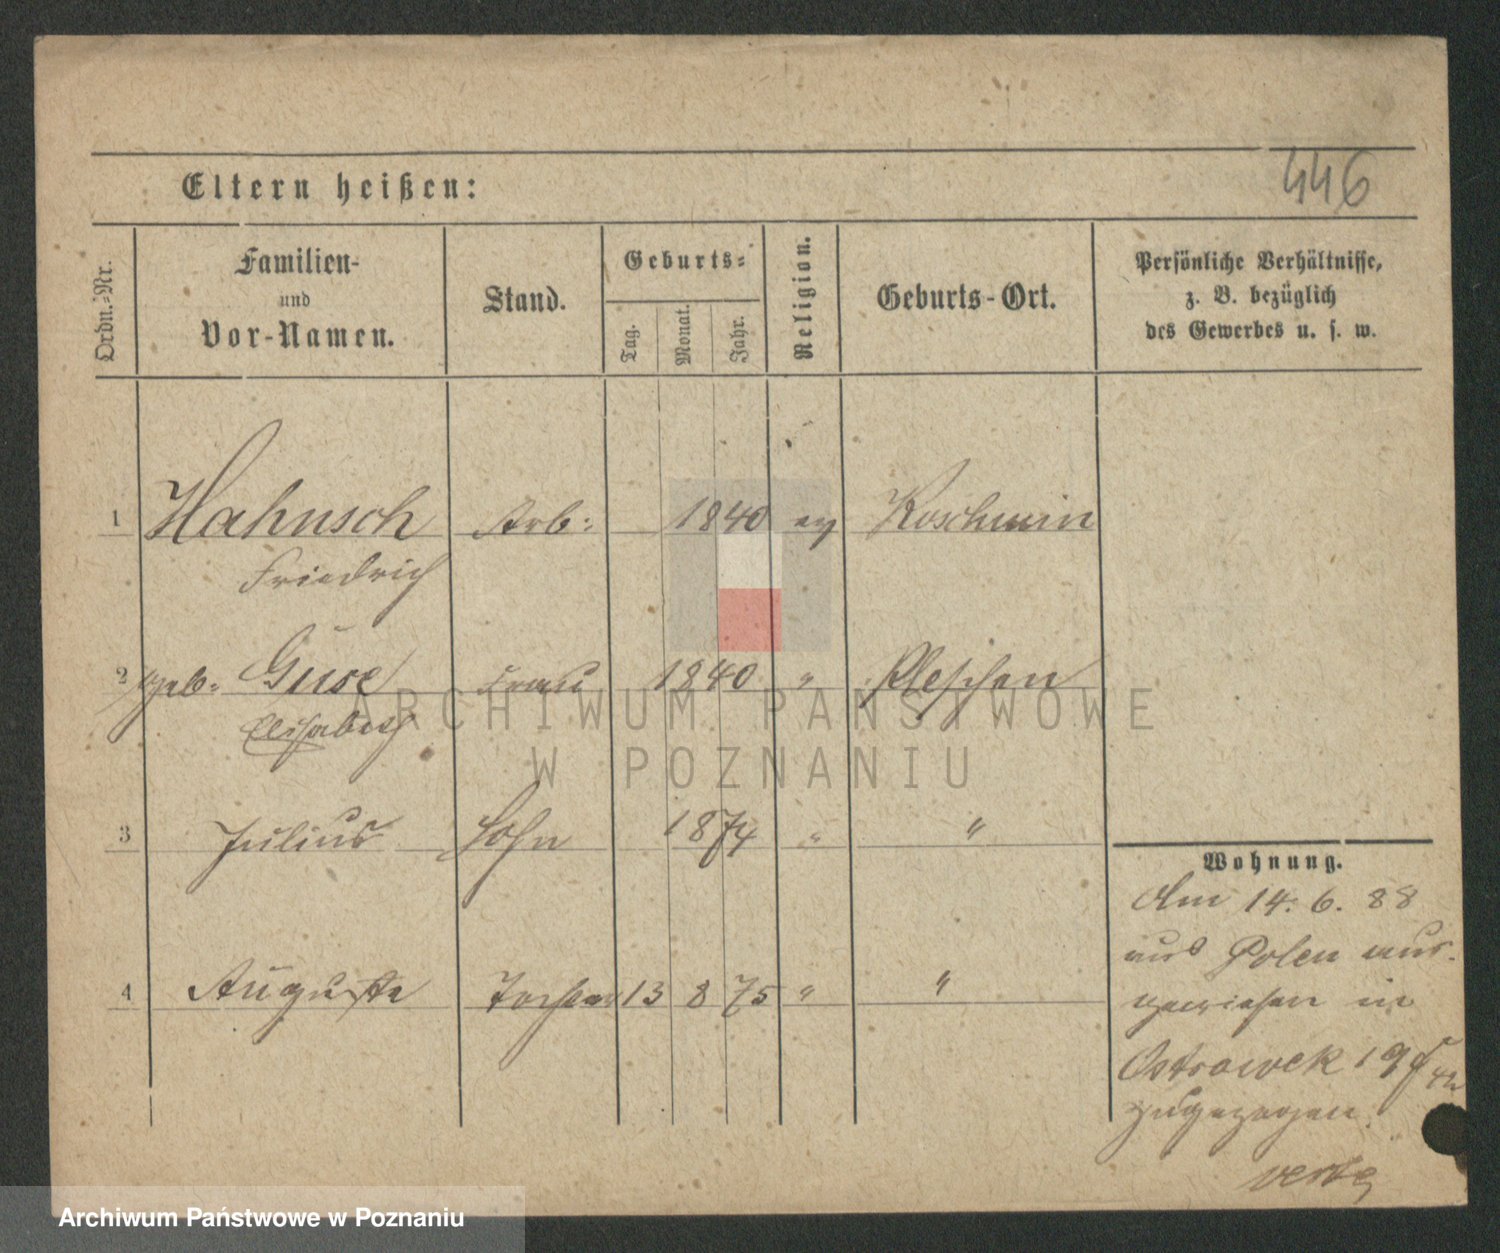 446
Eltern heißen:
Ordn.-Nr.
Familien-
und
Vor-Namen.
Stand.
Geburts-
Tag.
Monat.
Jahr.
Religion.
Geburts-Ort.
Persönliche Verhältnisse,
z. B. bezüglich
des Gewerbes u. s. w.
1 Hahnsch Arb: 1840 ev Koschmin
Friedrich
2 geb. Guse Frau 1840 " Pleschen
Elisabeth
3 Julius Sohn 1874 " "
4 Auguste Tochter 13 8 75 " "
Wohnung.
Am 14. 6. 88
aus Polen aus-
gewiesen in
Ostrowek 19
zugezogen.
ARCHIWUM PAŃSTWOWE
W POZNANIU
Archiwum Państwowe w Poznaniu